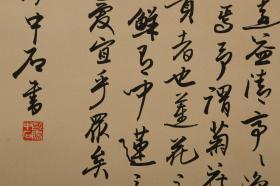 益清亭々
焉予謂菊花
貴者也蓮花之
鮮有聞蓮之
愛宜乎眾矣
中石書